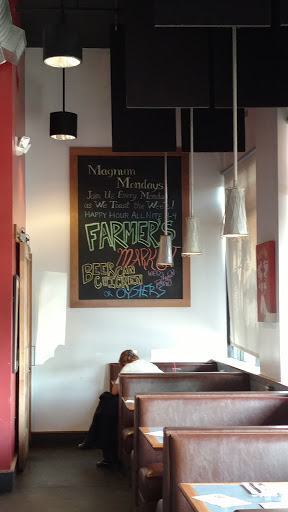 Magnum
Mondays
Join Us Every Monday
as We Toast the Week!
HAPPY HOUR ALL NITE
FARMER'S
MARKET
BEER CAN
CHICKEN
OR OYSTERS